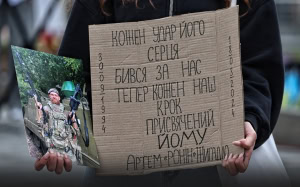 КОЖЕН УДАР ЙОГО
СЕРЦЯ
БИВСЯ ЗА НАС
ТЕПЕР КОЖЕН НАШ
КРОК
ПРИСВЯЧЕНИЙ
ЙОМУ
АРТЕМ «РОНІН»